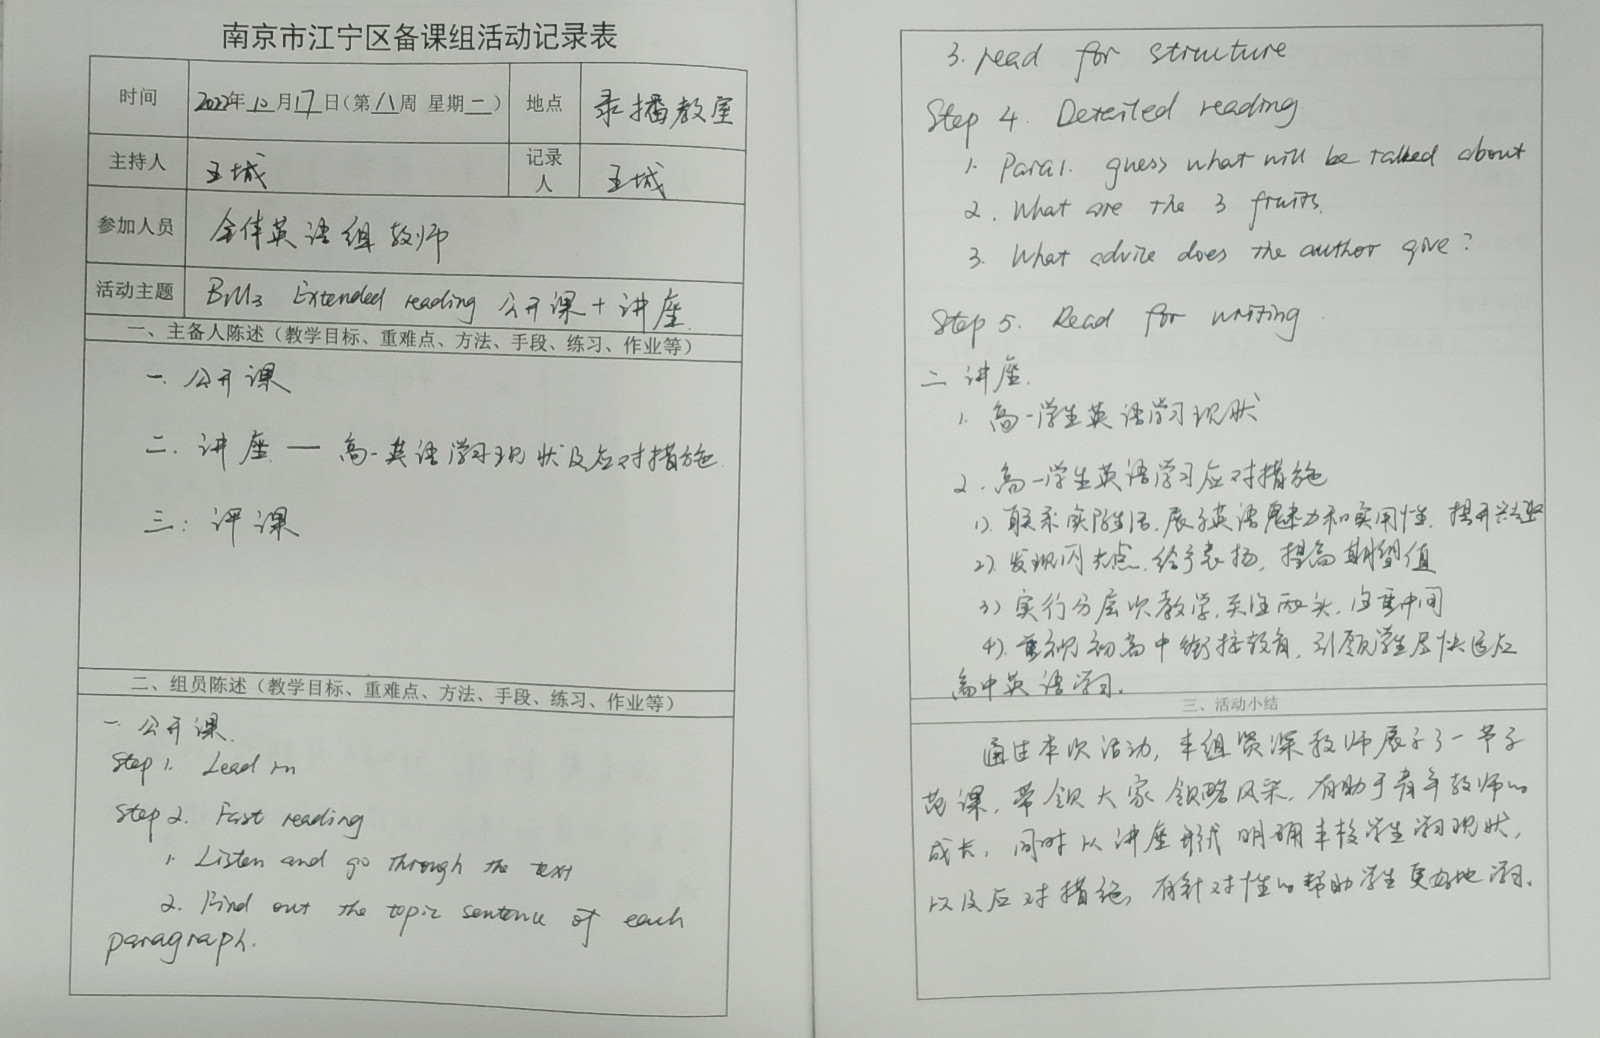 南京市江宁区备课组活动记录表
时间 2022年10月17日(第八周 星期二) 地点 录播教室
主持人 王城 记录人 王城
参加人员 全体英语组教师
活动主题 B1U3 Extended reading 公开课+讲座
一、主备人陈述(教学目标、重难点、方法、手段、练习、作业等)
一. 公开课
二. 讲座 — 高一英语学习现状及应对措施
三: 评课
二、组员陈述(教学目标、重难点、方法、手段、练习、作业等)
一. 公开课.
Step 1. Lead in
Step 2. Fast reading
1. Listen and go through the text
2. Find out the topic sentence of each
paragraph.
3. read for structure
Step 4. Detailed reading
1. Para1. guess what will be talked about
2. What are the 3 fruits.
3. What advice does the author give?
Step 5. Read for writing.
二 讲座.
1. 高一学生英语学习现状
2. 高一学生英语学习应对措施
1). 联系实际生活, 展示英语魅力和实用性, 提升兴趣
2). 发现闪光点, 给予表扬, 提高期望值
3) 实行分层次教学, 关注两头, 注重中间
4). 重视初高中衔接教育, 引领学生尽快适应
高中英语学习.
三、活动小结
通过本次活动, 本组资深教师展示了一节示
范课, 带领大家领略风采, 有助于青年教师的
成长, 同时以讲座形式明确本校学生学习现状,
以及应对措施, 有针对性的帮助学生更好地学习.